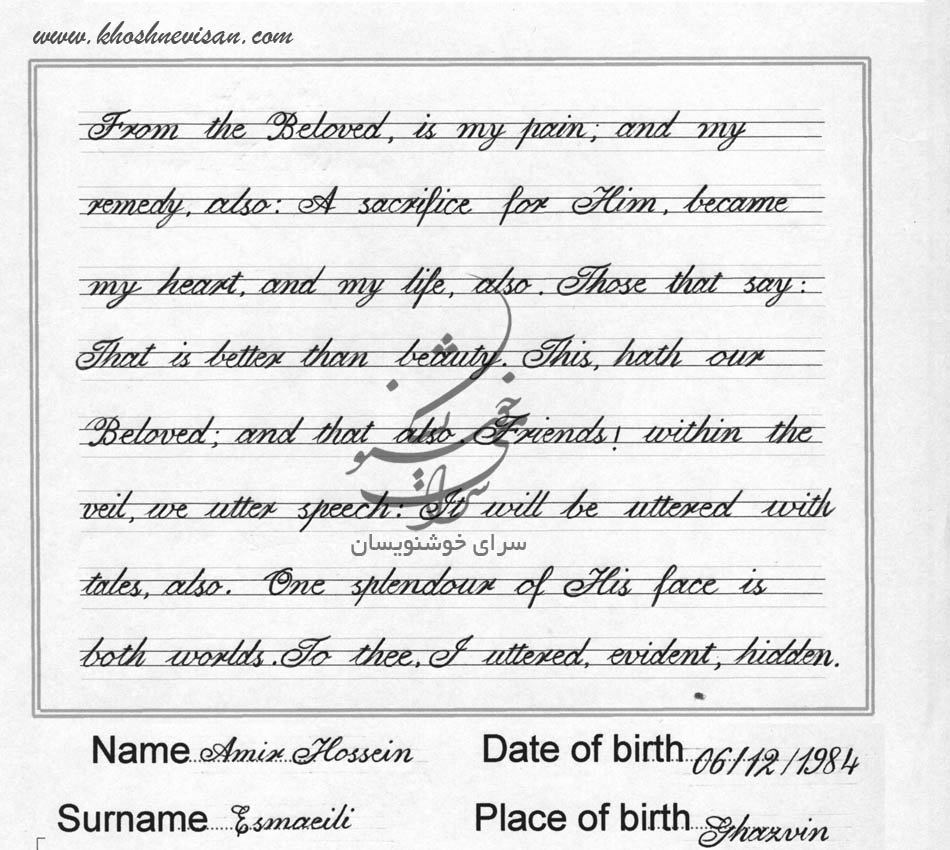 www.khoshnevisan.com
From the Beloved, is my pain; and my
remedy, also: A sacrifice for Him, became
my heart, and my life, also. Those that say:
That is better than beauty. This, hath our
Beloved; and that also. Friends! within the
veil, we utter speech: It will be uttered with
tales, also. One splendour of His face is
both worlds. To thee, I uttered, evident, hidden.
سرای خوشنویسان
Name Amir Hossein Date of birth 06/12/1984
Surname Esmaeili Place of birth Ghazvin